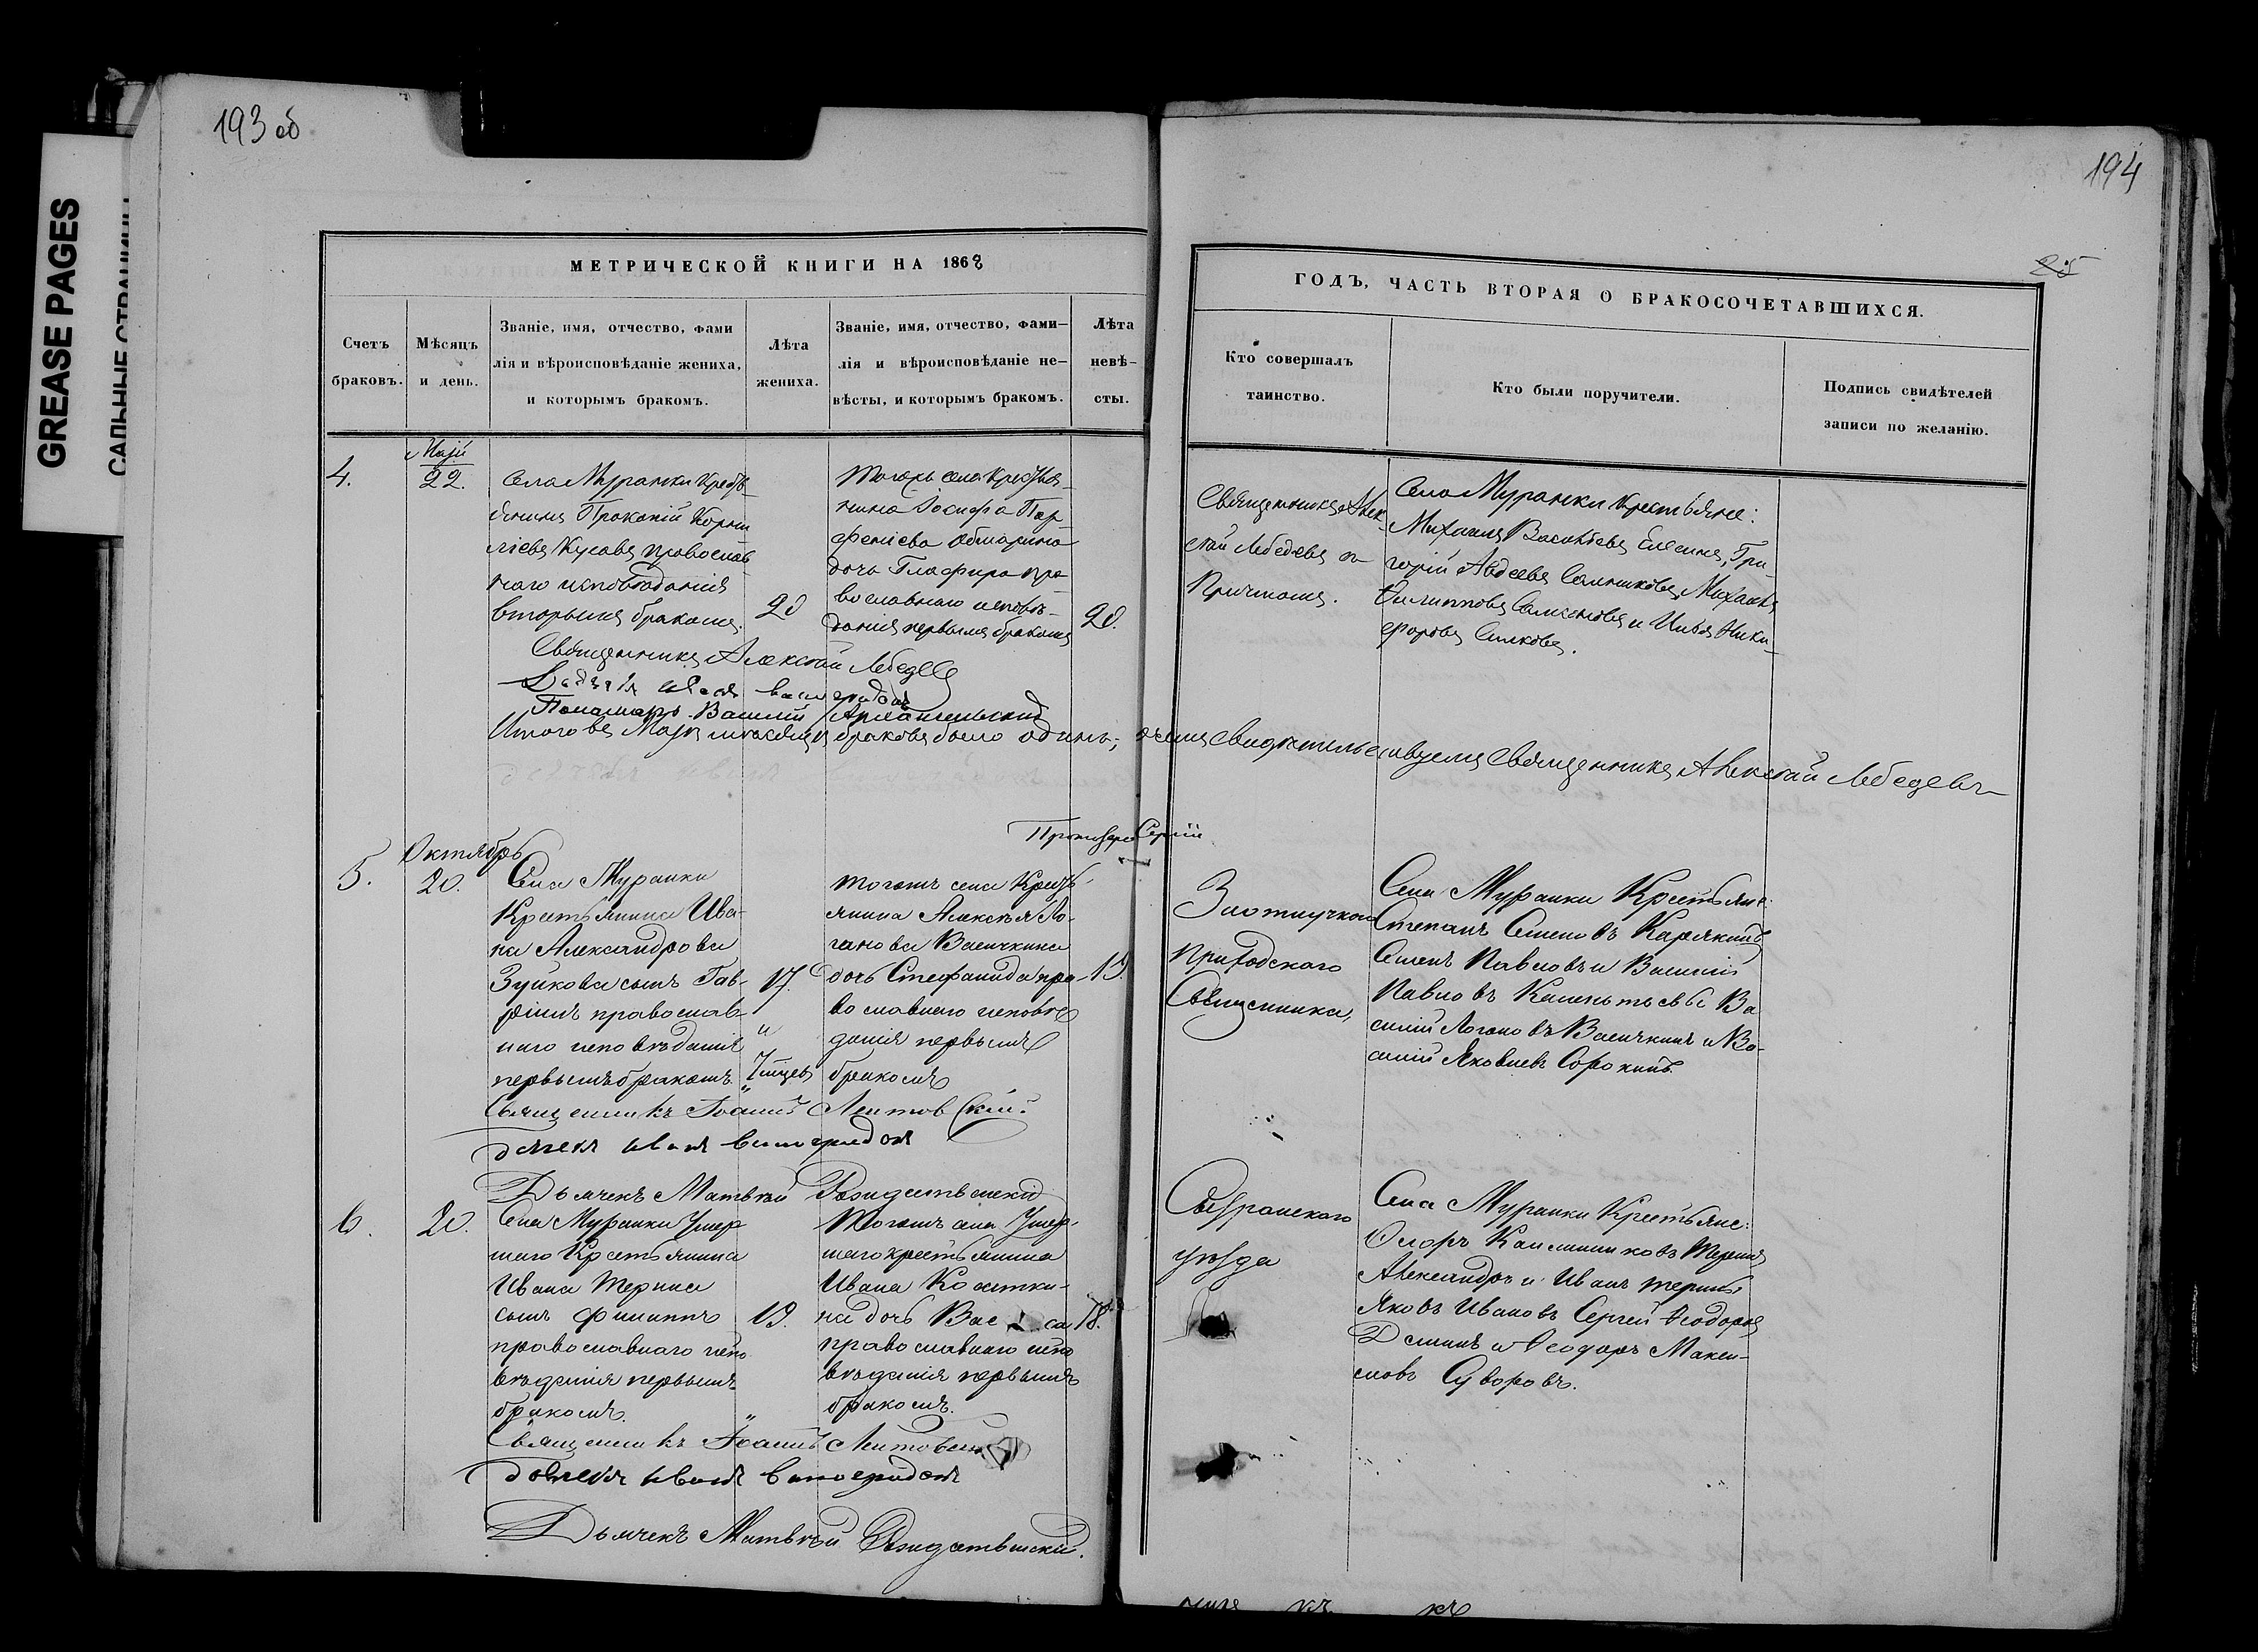 193 об
194
25
GREASE PAGES
САЛЬНЫЕ СТРАНИЦЫ
МЕТРИЧЕСКОЙ КНИГИ НА 1868
ГОДЪ, ЧАСТЬ ВТОРАЯ О БРАКОСОЧЕТАВШИХСЯ.
Счетъ
браковъ.
Мѣсяцъ
и день.
Званіе, имя, отчество, фами
лія и вѣроисповѣданіе жениха,
и которымъ бракомъ.
Лѣта
жениха.
Званіе, имя, отчество, фами–
лія и вѣроисповѣданіе не–
вѣсты, и которымъ бракомъ.
Лѣта
невѣ–
сты.
Кто совершалъ
таинство.
Кто были поручители.
Подпись свидѣтелей
записи по желанію.
4.
Маій
22.
Села Муранки кресть-
янинъ Прокопій Корни
ліевъ Кусавъ православ
наго исповѣданія
вторымъ бракомъ.
20
тогожъ села крестья-
нина Іосифа Пар
феніева
дочь Глафира пра
вославнаго исповѣ-
данія первымъ бракомъ
20.
Священникъ Алек-
сѣй Лебедевъ съ
Причтомъ.
Села Муранки крестьяне:
Михаилъ Васильевъ Елесинъ, Гри-
горій Авдеевъ Сальниковъ, Михаилъ
Филипповъ и Илья Ники-
форовъ Силковъ.
Священникъ Алексѣй Лебедевъ
Дьячекъ Иванъ Виноградовъ
Пономарь Василій Архангельский
Итого въ Маѣ мѣсяцѣ браковъ было одинъ; въ чемъ свидѣтельствуемъ Священникъ Алексѣй Лебедевъ
5.
Октябрь
20.
Села Муранки
Крестьянина Ива-
на Александрова
Зуйкова сынъ Гав-
ріилъ православ-
наго исповѣданія
первымъ бракомъ.
17.
и
7 мѣсяц
тогожъ села Кресть-
янина Алексѣя Ло-
гинова Васичкина
дочь Стефанида пра
вославнаго исповѣ
данія первымъ
бракомъ
19.
Протоіерей Сергій
Приходскаго
Священника,
Села Муранки Крестьяне:
Степанъ Семеновъ Карякинъ
Семенъ Павловъ и Василій
Павловъ Ва
силій Логиновъ Васичкинъ и Ва-
силій Яковлевъ Сорокинъ.
Священникъ Іоаннъ Лентовскій.
Дьячекъ Иванъ Виноградовъ
Дьячекъ Матвѣй Рождественскій
6.
20.
Села Муранки Умер
шаго Крестьянина
Ивана Терина
сынъ Филиппъ
православнаго испо
вѣданія первымъ
бракомъ.
19.
Тогожъ села Умер-
шаго крестьянина
Ивана
на дочь Вас са
православнаго испо
вѣданія первымъ
бракомъ.
18.
Сызранскаго
уѣзда
Села Муранки Крестьяне:
Теринъ
Александръ и Иванъ Терины
Яковъ Ивановъ Сергей Ѳеодоровъ
Деминъ и Ѳеодоръ Макси-
мовъ Суворовъ.
Священникъ Іоаннъ Лентовскій
Дьячекъ Иванъ Виноградовъ
Дьячекъ Матвѣй Рождественскій.